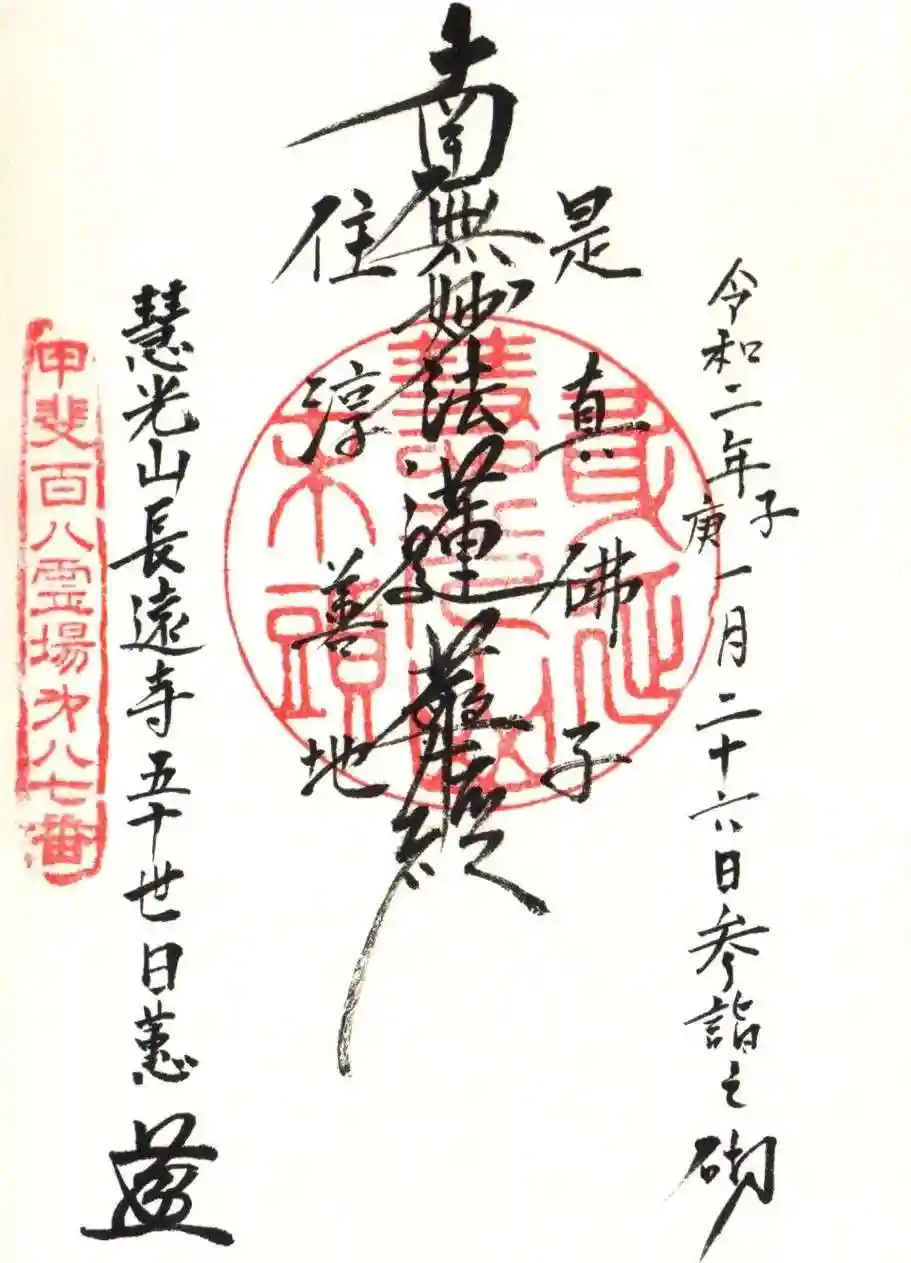 令和二年庚子一月二十六日参詣之砌
是真佛子
南無妙法蓮華経
住淳善地
慧光山長遠寺五十世日蕙
甲斐百八霊場第八七番